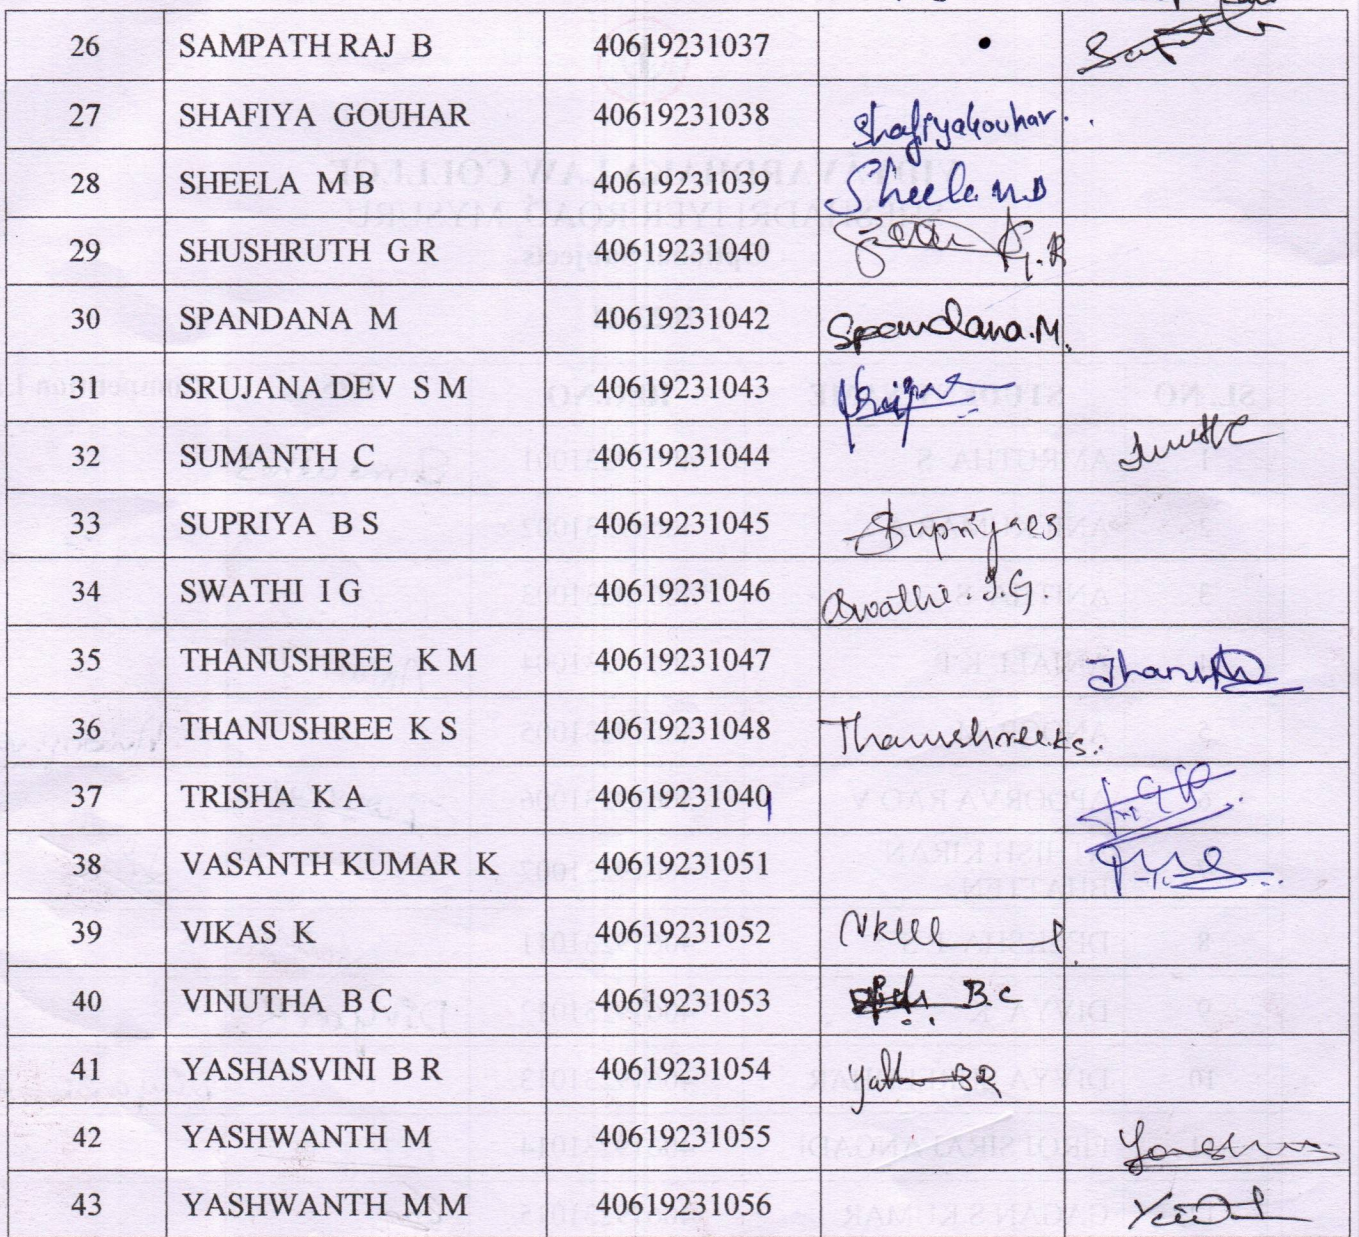 26 SAMPATH RAJ B 40619231037
27 SHAFIYA GOUHAR 40619231038 Shafiya Gouhar.
28 SHEELA M B 40619231039 Sheela M B
29 SHUSHRUTH G R 40619231040 G.R
30 SPANDANA M 40619231042 Spandana.M.
31 SRUJANADEV S M 40619231043
32 SUMANTH C 40619231044
33 SUPRIYA B S 40619231045 Supriya B S
34 SWATHI I G 40619231046 Swathi I.G
35 THANUSHREE K M 40619231047
36 THANUSHREE K S 40619231048 Thanushree.ks.
37 TRISHA K A 40619231049
38 VASANTH KUMAR K 40619231051
39 VIKAS K 40619231052
40 VINUTHA B C 40619231053 B.C
41 YASHASVINI B R 40619231054 BR
42 YASHWANTH M 40619231055
43 YASHWANTH M M 40619231056